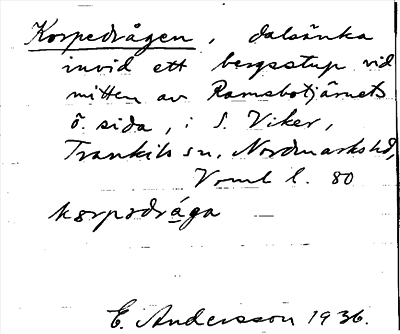 Korpedrågen, dalsänka
invid ett bergsstup vid
mitten av Ramsbotjärnets
ö. sida, i S. Viker,
Trankils sn, Nordmarks hd,
Vrml l. 80
kɷrpɷdrága
E. Andersson 1936.